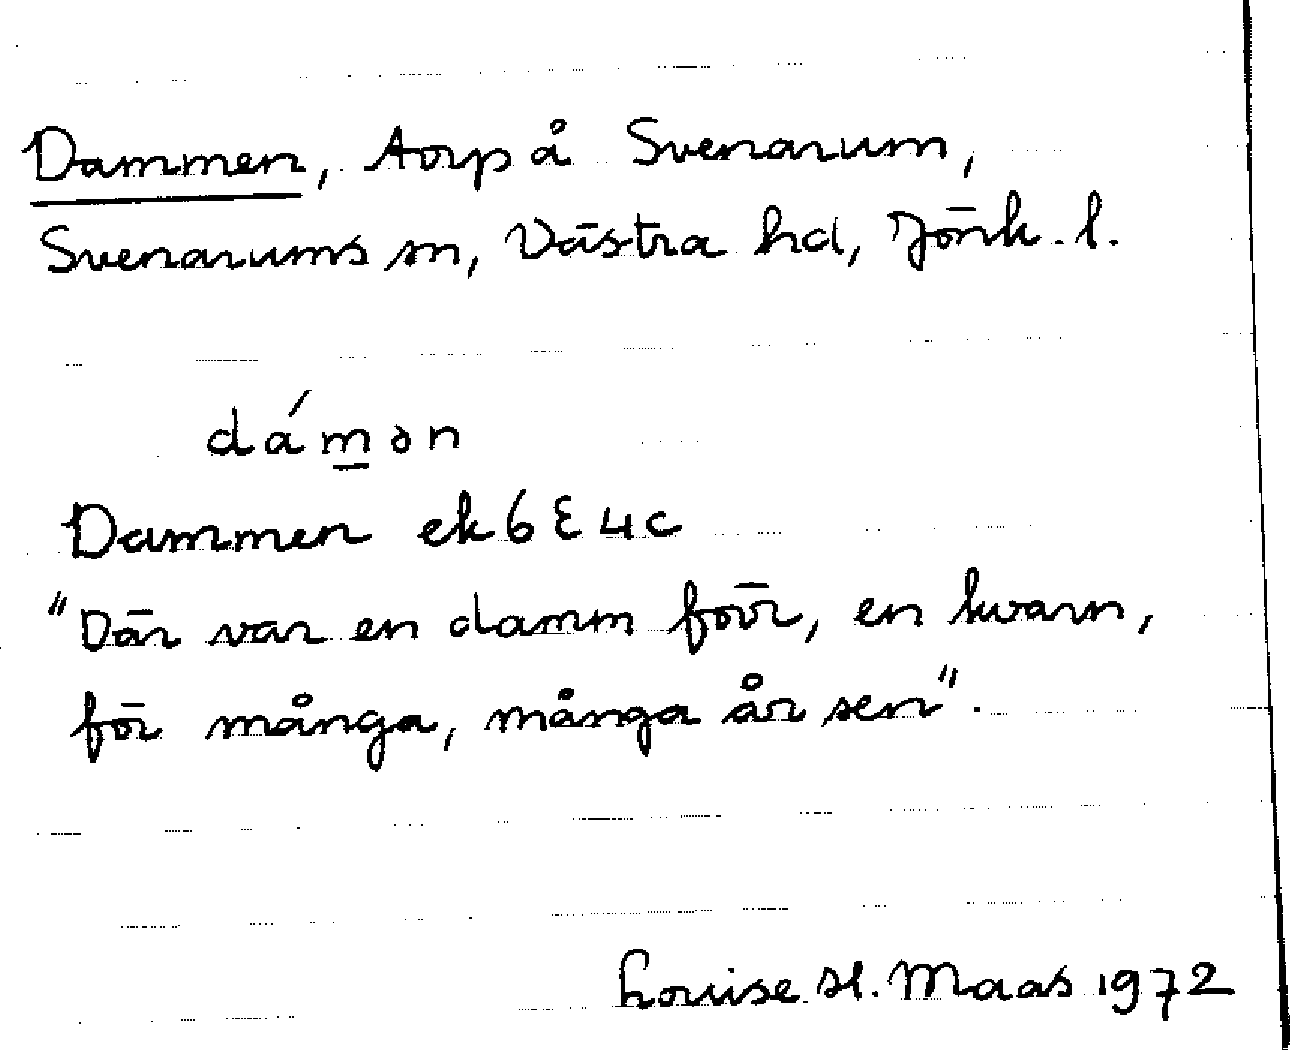 Dammen, torp å Svenarum,
Svenarums sn, Västra hd, Jönk. l.
dámən
Dammen ek 6 E 4 c
"Där var en damm förr, en kvarn,
för många, många år sen".
Louise H. Maas 1972